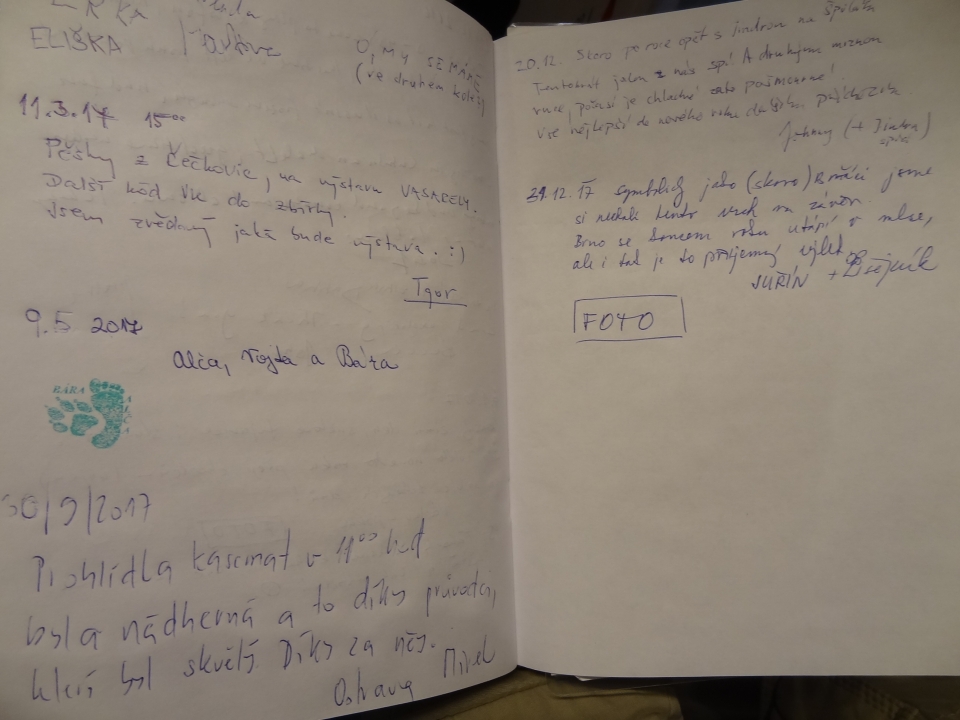 ELIŠKA
O, MY SE MÁME
(ve druhém
11.3.17 15⁰⁰
Pěšky z Řečkovic, na výstavu VASARELY.
Další kód VK do zbírky.
Jsem zvědavý jaká bude výstava. :)
Igor
9.5 2017
Alča, Vojta a Bára
BÁRA
30/9/2017
Prohlídla kasemat v 11⁰⁰ hod
byla nádherná a to díky průvodci,
který byl skvělý Díky za něj.
Ostrava
20.12. Skoro po roce opět s Jindrou na Špilasu
Tentokrát jeden z nás spí! A druhému mrznou
ruce, počasí je chladné
Vše nejlepší do nového roku
Johnny (+ Jindra)
31.12.17 symbolicky jako (skoro) Brňáci jsme
si nechali tento vrch na závěr.
Brno se koncem roku utápí v mlze,
ale i tak je to příjemný výlet
JUŘÍN +
FOTO